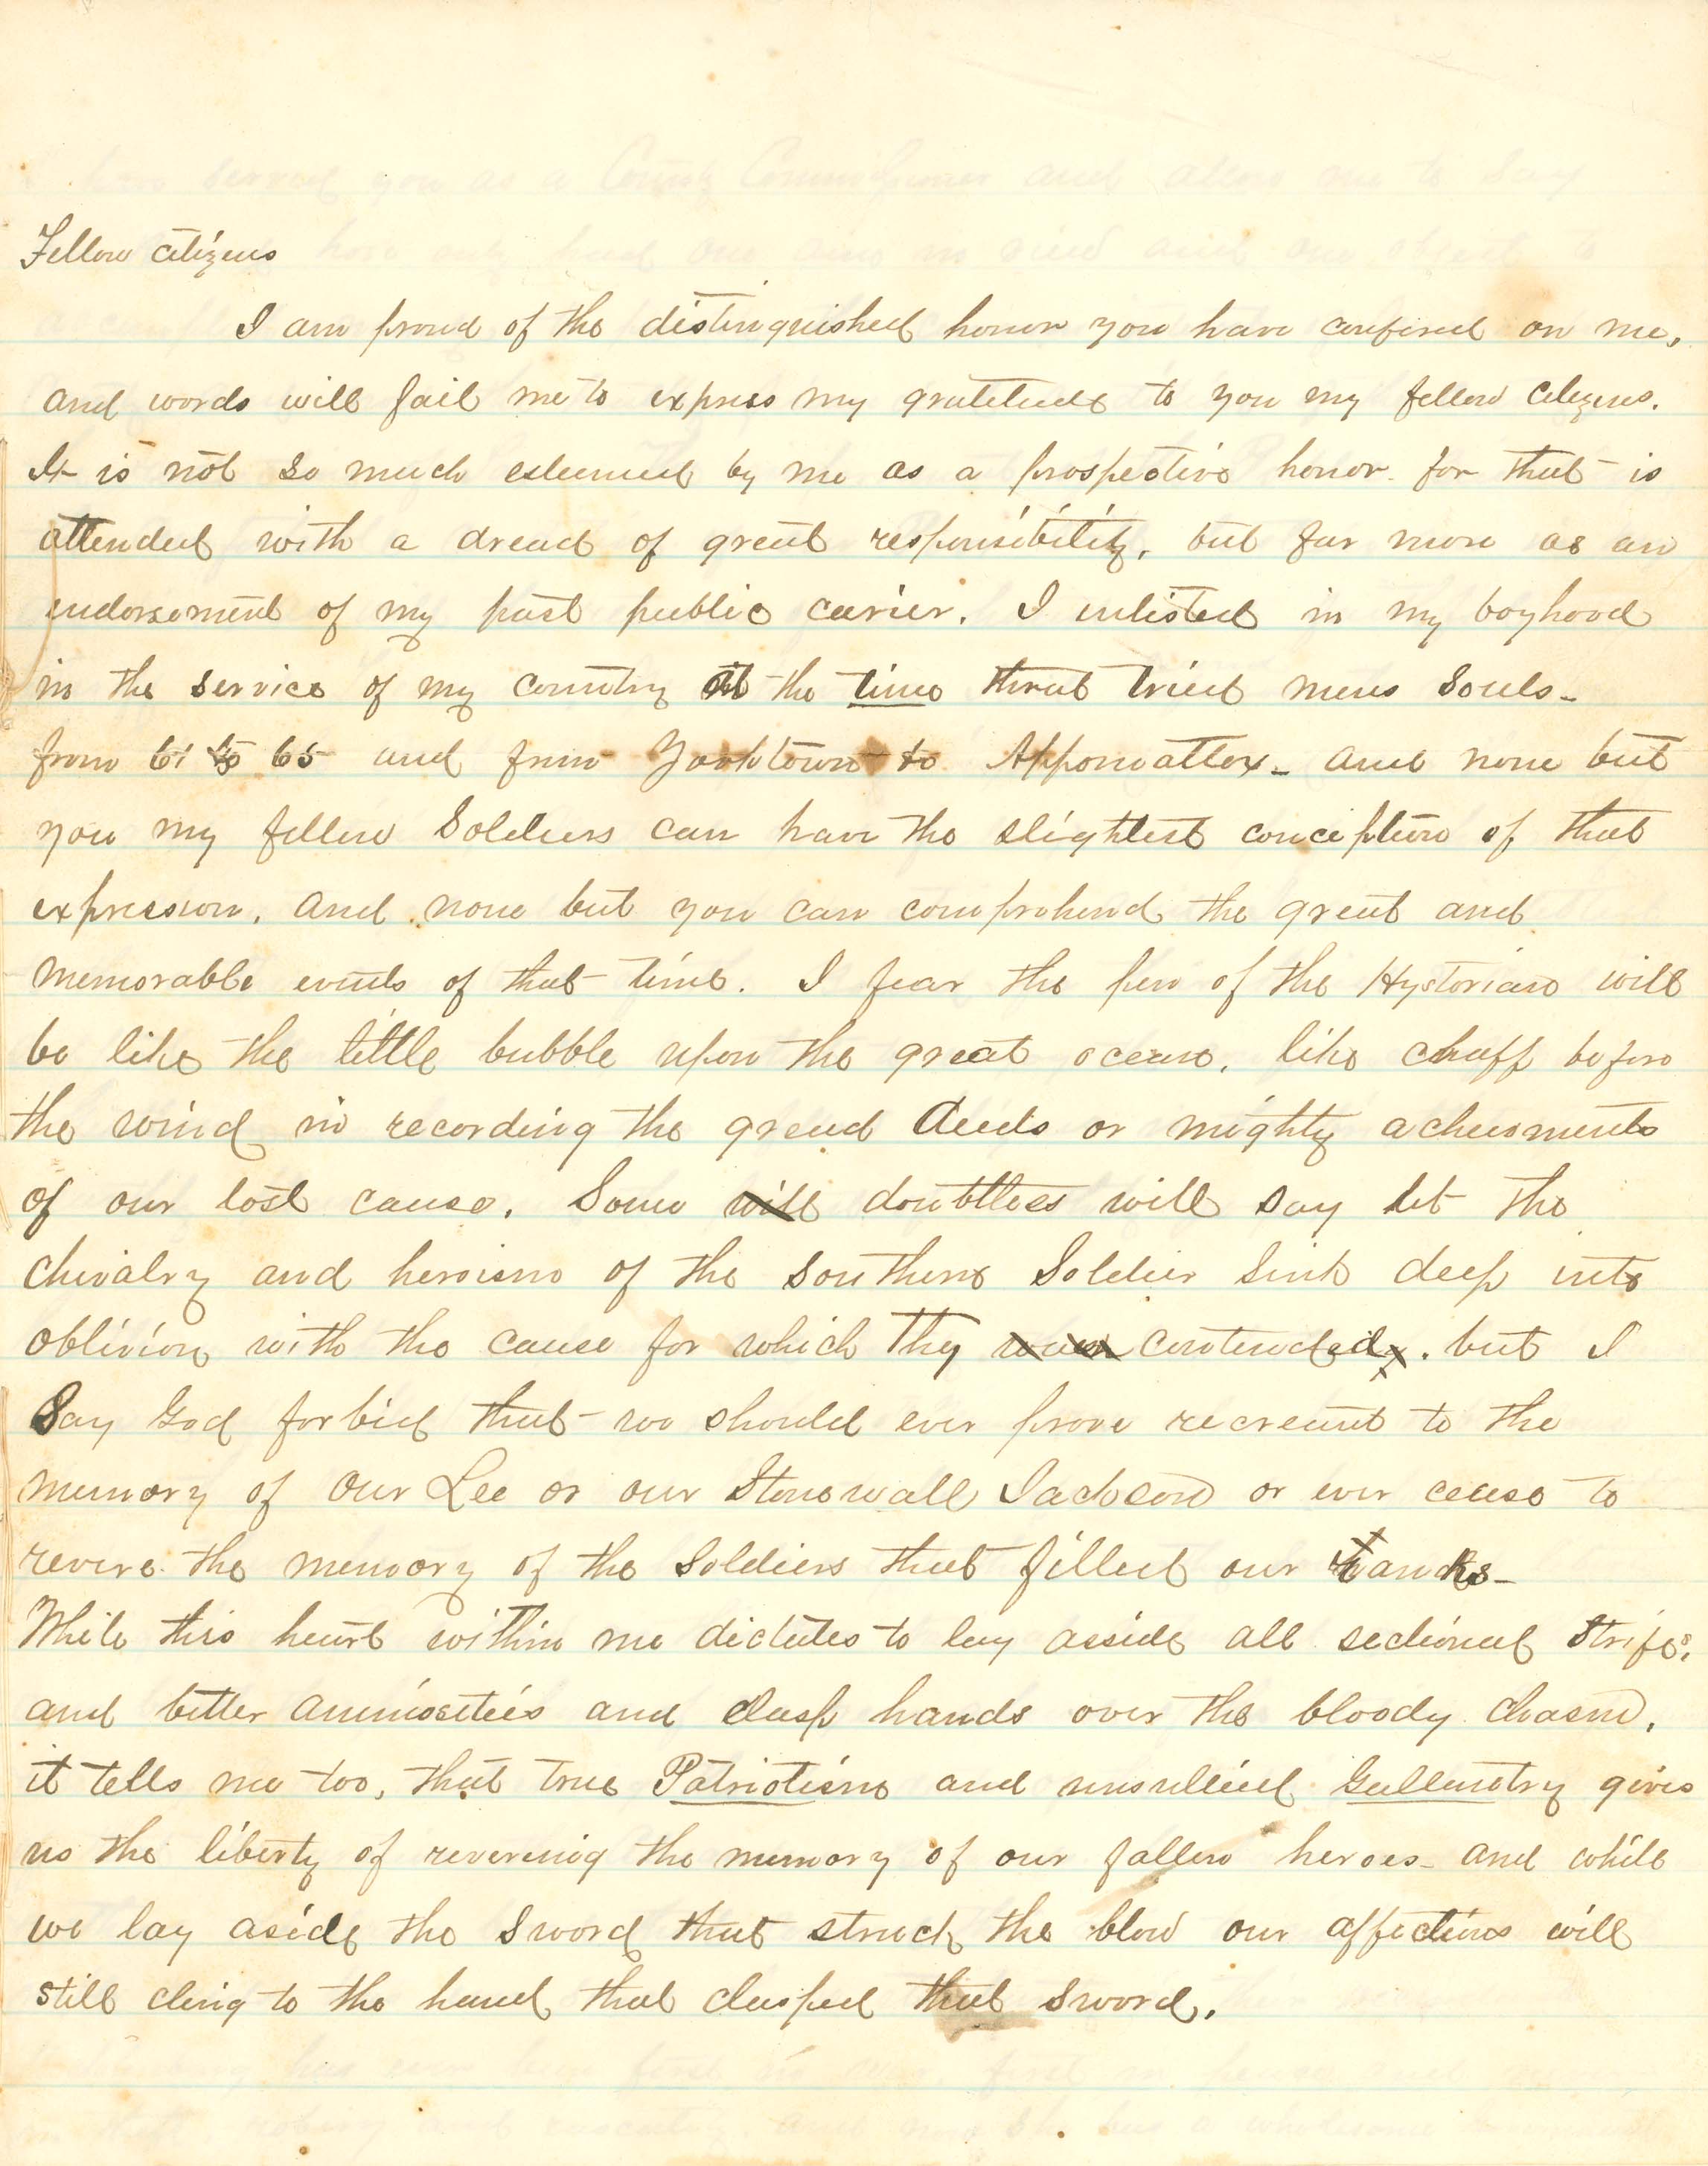 Fellow citizens
I am proud of the distinguished honor you have confired on me,
and words will fail me to express my gratitude to you my fellow citizens.
It is not so much esteemed by me as a prospective honor. for that is
attended with a dread of great responsibility, but far more as an
endorsement of my past public carier. I enlisted in my boyhood
in the service of my country at the time that tried mens Souls-
from 61 to 65 and from Yorktown to Appomattox- and none but
you my fellow Soldiers can have the slightest conception of that
expression. and none but you can comprehend the great and
memorable events of that time. I fear the pen of the Hystorian will
be like the little bubble upon the great ocean, like chaff before
the wind in recording the grand deeds or mighty acheivments
of our lost cause. Some will doubtless will say let the
chivalry and heroism of the Southern Soldier Sink deep into
oblivion with the cause for which they contended. but I
Say God forbid that we should ever prove recreant to the
memory of our Lee or our Stonewall Jackson or ever cease to
revere the memory of the Soldiers that filled our ranks-
While this heart within me dictates to lay asside all sectional strife,
and bitter animosities and clasp hands over the bloody chasm,
it tells me too, that true Patriotism and unsullied Gallantry gives
us the liberty of revering the memory of our fallen heroes- and while
we lay aside the Sword that struck the blow our affections will
still cling to the hand that clasped that Sword.